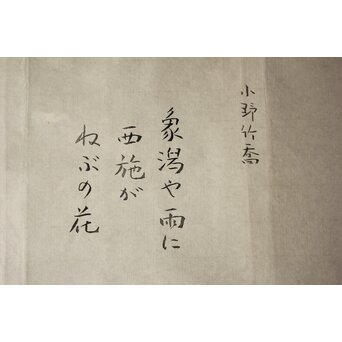 小野竹喬
象潟や雨に
西施が
ねぶの花